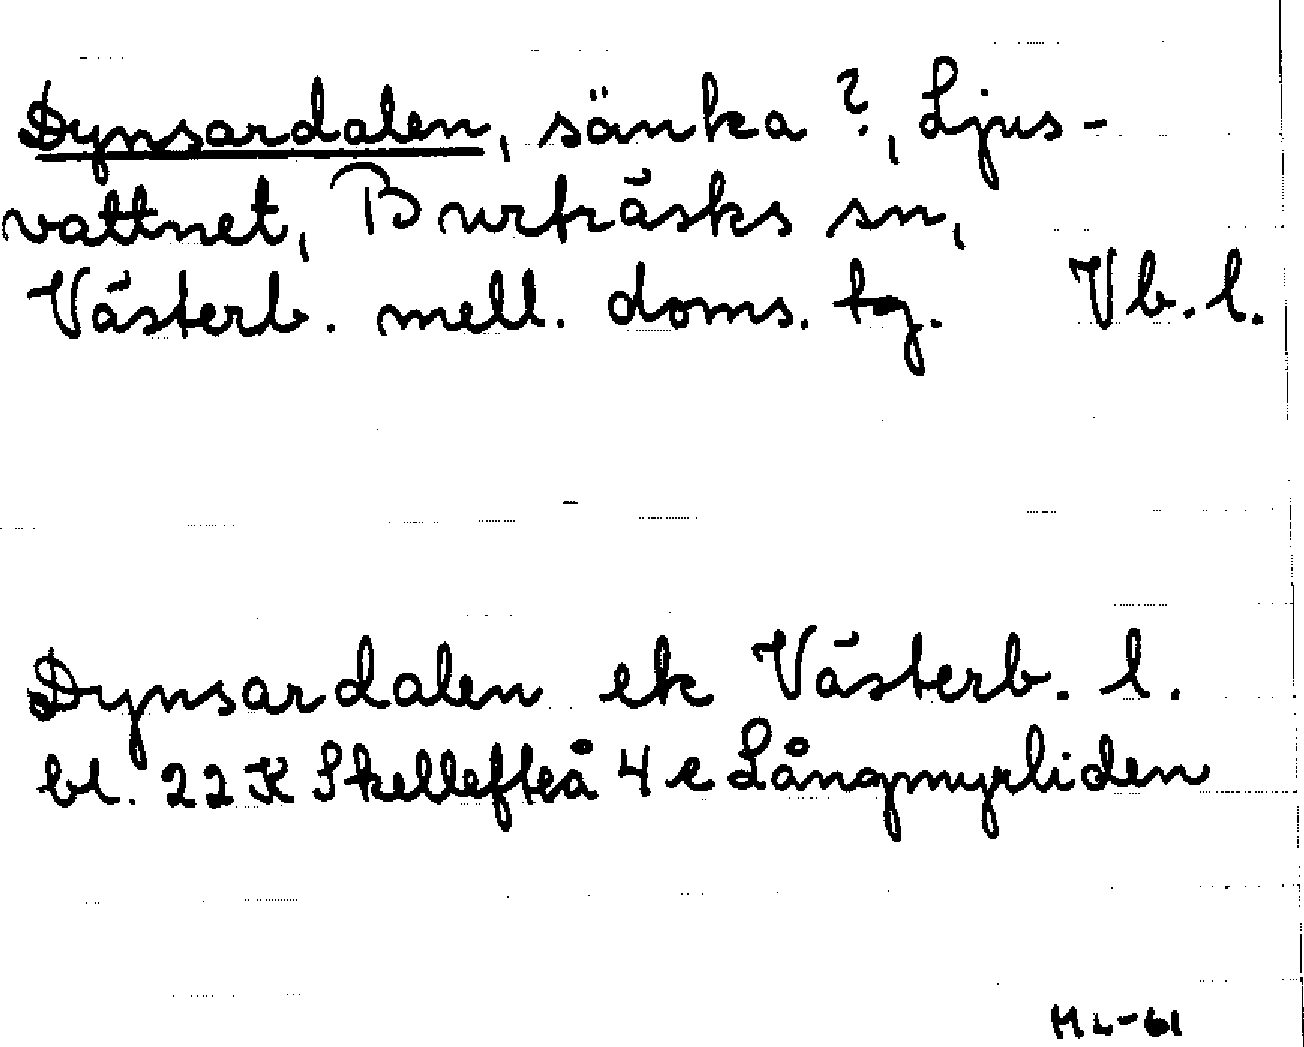 Dynsardalen, sänka ?, Ljus-
vattnet, Burträsks sn,
Västerb. mell. doms. tg. Vb. l.
Dynsardalen ek Västerb. l.
bl. 22 K Skellefteå 4 e Långmyrliden
ML-61